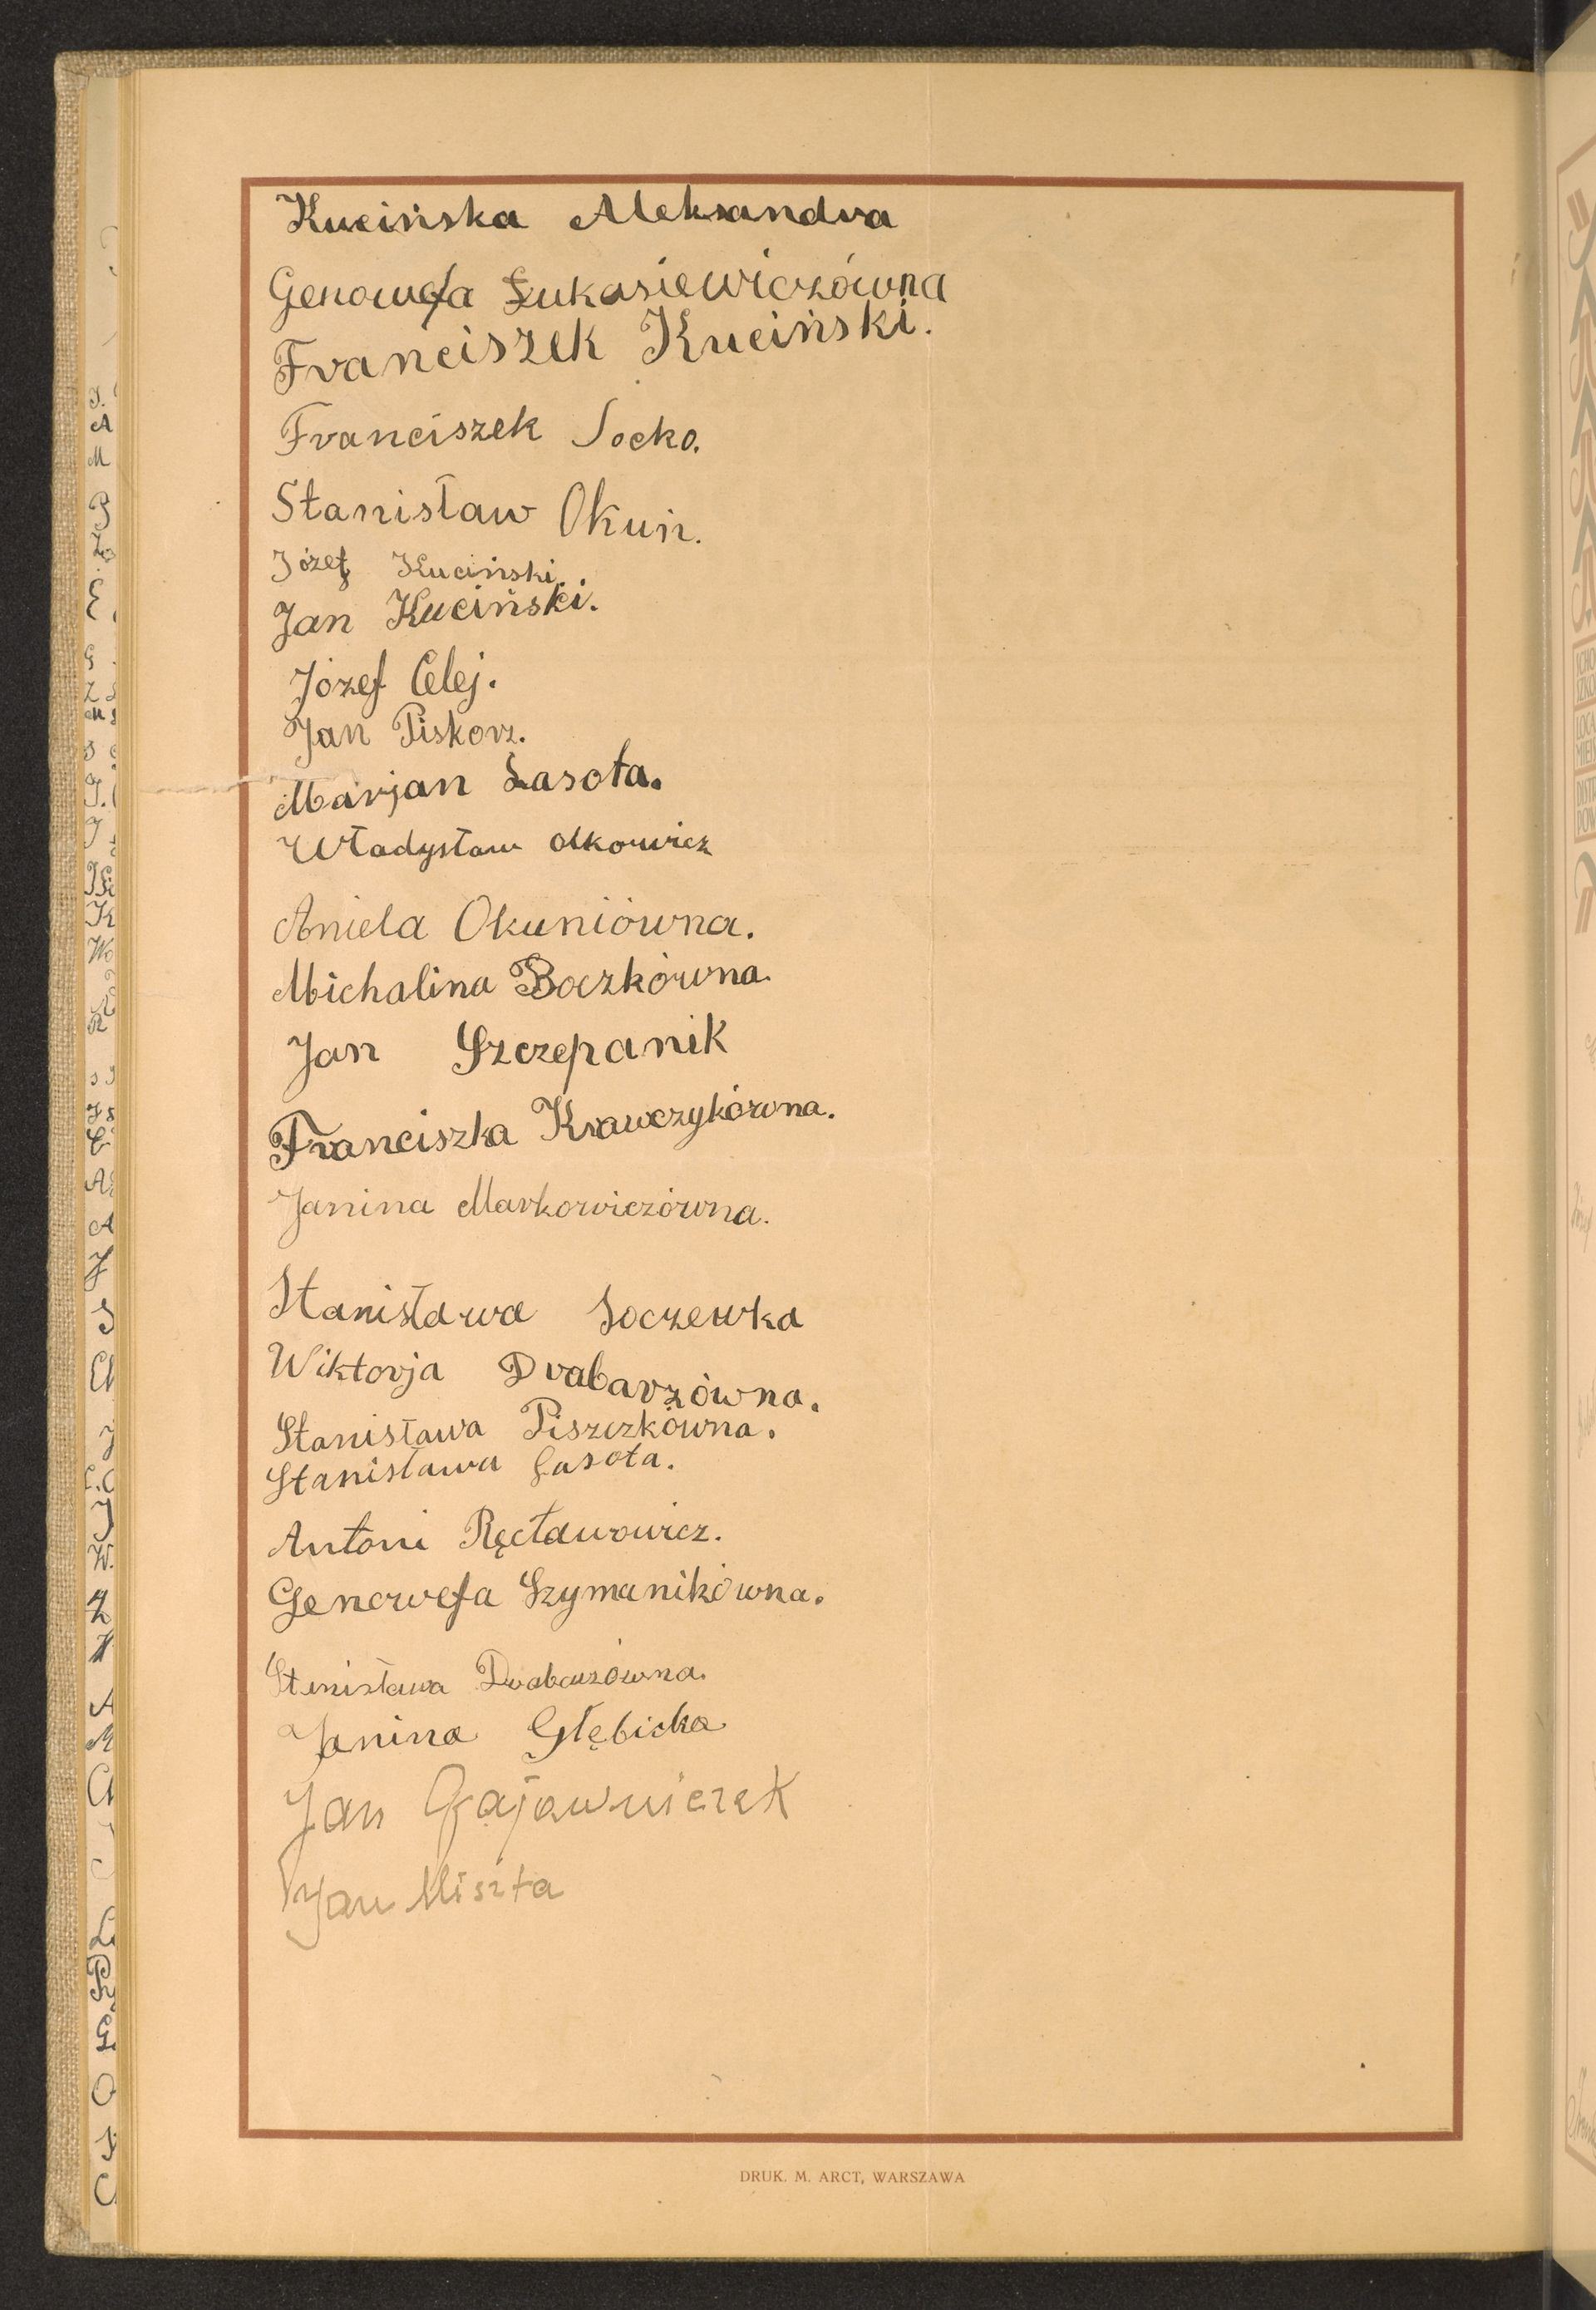 Kucińska Aleksandra
Genowefa Łukasiewiczówna
Franciszek Kuciński.
Franciszek Socko.
Stanisław Okuń.
Józef Kuciński.
Jan Kuciński.
Józef Celej.
Jan Piskorz.
Marjan Lasota.
Władysław Olkowicz
Aniela Okuniówna.
Michalina Boczkówna.
Jan Szczepanik
Franciszka Krawczykówna.
Janina Markowiczówna.
Stanisława Soczewka
Wiktorja Drabarzówna.
Stanisława Piszczkówna.
Stanisława Lasota.
Antoni Ręcławowicz.
Genowefa Szymanikówna.
Stanisława Drabarzówna.
Janina Głębicka
Jan Gajowniczek
Jan Miszta
DRUK. M. ARCT, WARSZAWA